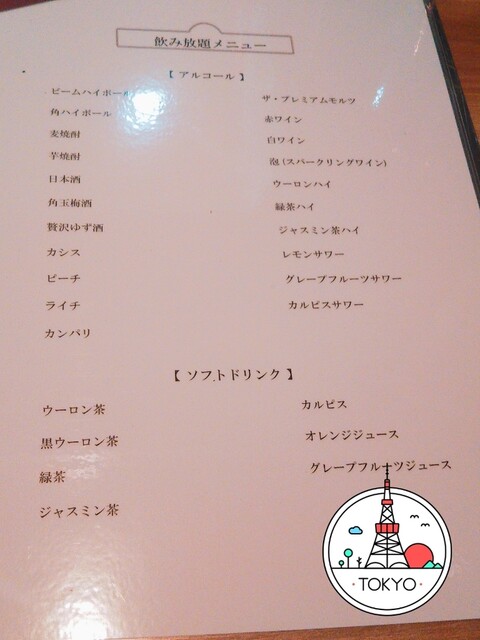 飲み放題メニュー
【 アルコール 】
ビームハイボール
角ハイボール
麦焼酎
芋焼酎
日本酒
角玉梅酒
贅沢ゆず酒
カシス
ピーチ
ライチ
カンパリ
ザ・プレミアムモルツ
赤ワイン
白ワイン
泡(スパークリングワイン)
ウーロンハイ
緑茶ハイ
ジャスミン茶ハイ
レモンサワー
グレープフルーツサワー
カルピスサワー
【 ソフトドリンク 】
ウーロン茶
黒ウーロン茶
緑茶
ジャスミン茶
カルピス
オレンジジュース
グレープフルーツジュース
・TOKYO・